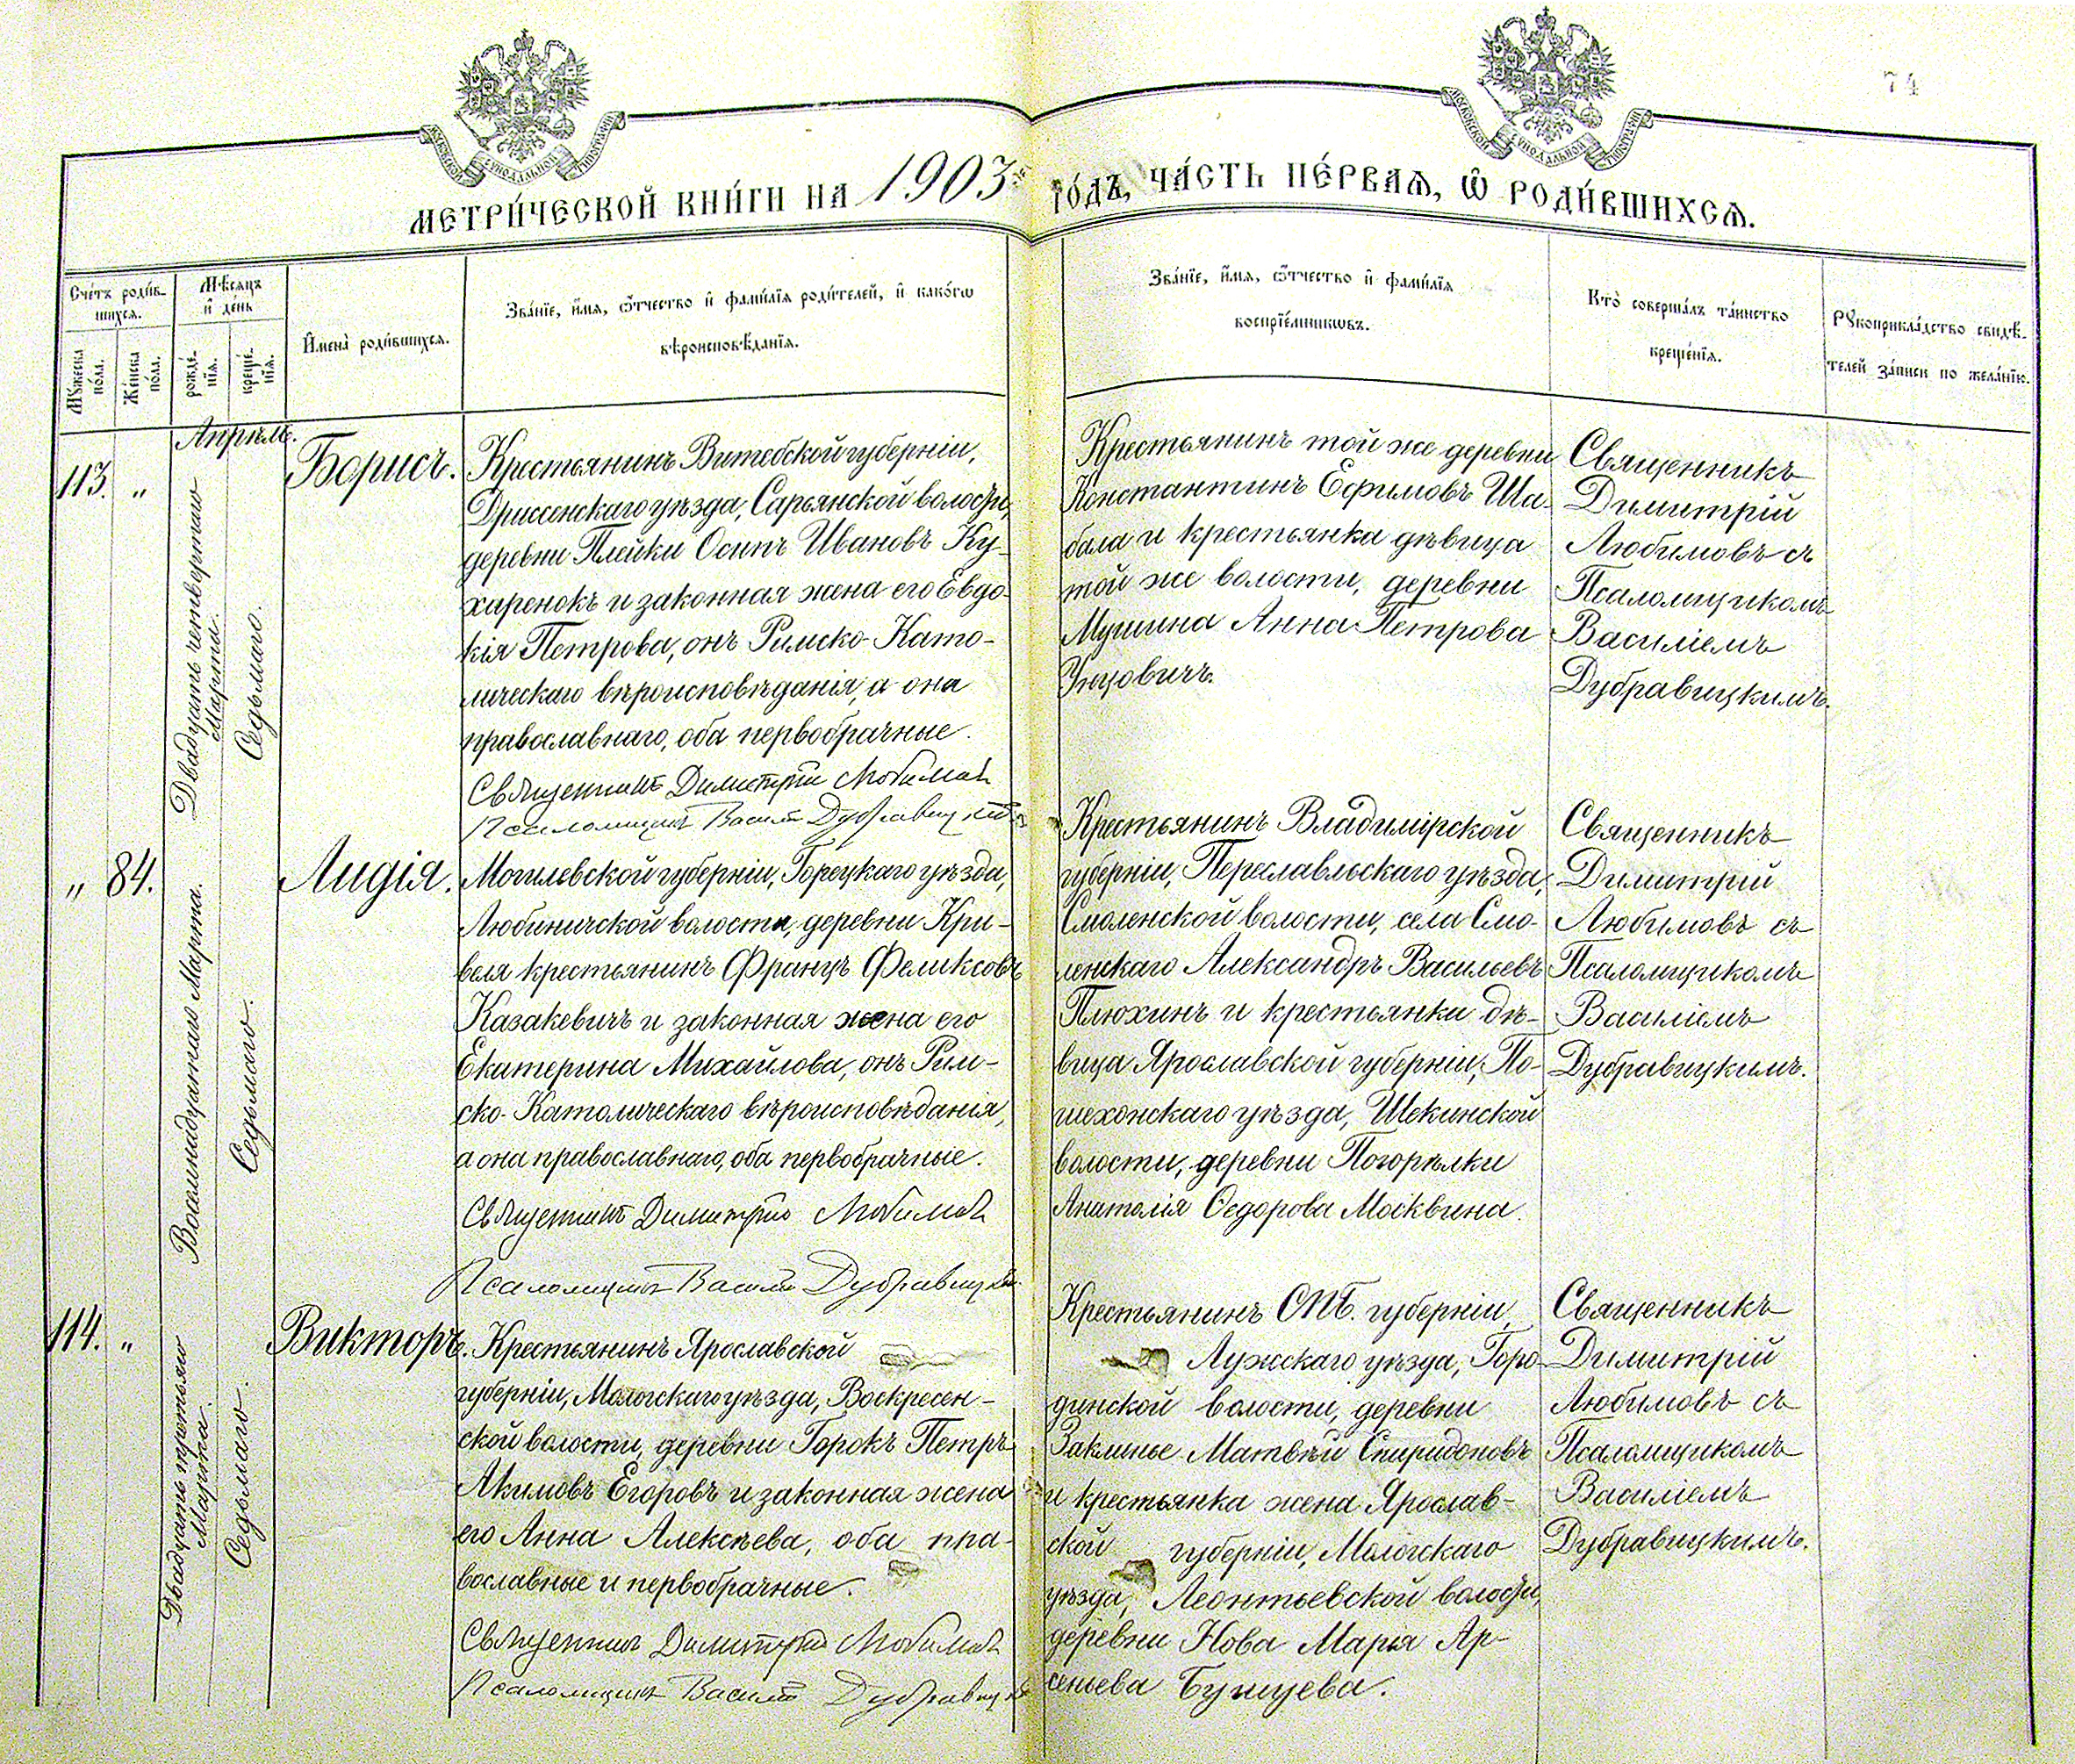 74
МОСКОВСКОЙ СѴНОДАЛЬНОЙ ТИПОГРАФІИ
МОСКОВСКОЙ СѴНОДАЛЬНОЙ ТИПОГРАФІИ
МЕТРИ́ЧЕСКОЙ КНИ́ГИ НА 1903 ГО́ДЪ, ЧА́СТЬ ПЕ́РВАѦ, Ѽ РОДИ́ВШИХСѦ.
Сче́тъ роди́в-
шихсѧ.
Мꙋ́жеска по́ла.
Же́нска по́ла.
Мѣ́сѧцъ
и҆ де́нь
рожде́-
нїѧ.
креще́-
нїѧ.
И҆мена̀ роди́вшихсѧ.
Зва́нїе, и҆́мѧ, ѻ҆́тчество и҆ фами́лїѧ роди́телей, и҆ како́гѡ
вѣроисповѣ́данїѧ.
Зва́нїе, и҆́мѧ, ѻ҆́тчество и҆ фами́лїѧ
воспрїе́мникѡвъ.
Кто̀ соверша́лъ та́инство
креще́нїѧ.
Рꙋкоприкла́дство свидѣ́-
телей за́писи по жела́нїю.
Апрѣль.
113. "
Двадцать четвертаго
Марта.
Седьмаго.
Борисъ.
Крестьянинъ Витебской губерніи,
Дриссенскаго уѣзда, Сарьянской волости,
деревни Плейки Осипъ Ивановъ Ку-
харенокъ и законная жена его Евдо-
кія Петрова, онъ Римско-Като-
лическаго вѣроисповѣданія, а она
православнаго, оба первобрачные.
Священникъ Димитрій Любимовъ
Псаломщикъ Василій Дубравицкій
Крестьянинъ той же деревни
Константинъ Ефимовъ Ша-
бала и крестьянка дѣвица
той же волости, деревни
Мушина Анна Петрова
Унуовичъ.
Священникъ
Димитрій
Любимовъ съ
Псаломщикомъ
Василіемъ
Дубравицкимъ.
" 84.
Восемнадцатаго Марта.
Седьмаго.
Лидія.
Могилевской губерніи, Горецкаго уѣзда,
Любиничской волости, деревни Кри-
веля крестьянинъ Францъ Феликсовъ
Казакевичъ и законная жена его
Екатерина Михайлова, онъ Рим-
ско-Католическаго вѣроисповѣданія,
а она православнаго, оба первобрачные.
Священникъ Димитрій Любимовъ
Псаломщикъ Василій Дубравицкій
Крестьянинъ Владимірской
губерніи, Переславльскаго уѣзда,
Смоленской волости, села Смо-
ленскаго Александръ Васильевъ
Плюхинъ и крестьянка дѣ-
вица Ярославской губерніи, По-
шехонскаго уѣзда, Щекинской
волости, деревни Погорѣлки
Анатолія Ѳедорова Москвина.
Священникъ
Димитрій
Любимовъ съ
Псаломщикомъ
Василіемъ
Дубравицкимъ.
114. "
Двадцать третьяго
Марта.
Седьмаго.
Викторъ.
Крестьянинъ Ярославской
губерніи, Мологскаго уѣзда, Воскресен-
ской волости, деревни Горокъ Петръ
Акимовъ Егоровъ и законная жена
его Анна Алексѣева, оба пра-
вославные и первобрачные.
Священникъ Димитрій Любимовъ
Псаломщикъ Василій Дубравицкій
Крестьянинъ СПБ. губерніи,
Лужскаго уѣзда, Горо-
динской волости, деревни
Заклинье Матвѣй Спиридоновъ
и крестьянка жена Ярослав-
ской губерніи, Мологскаго
уѣзда, Леонтьевской волости,
деревни Нова Марія Ар-
сеньева Бунцева.
Священникъ
Димитрій
Любимовъ съ
Псаломщикомъ
Василіемъ
Дубравицкимъ.